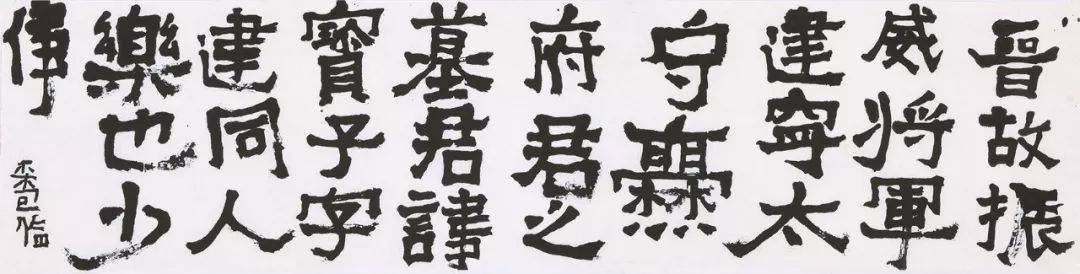 晉故振
威将軍
建寧太
守爨
府君之
墓君諱
寶子字
建同人
樂也少
偉